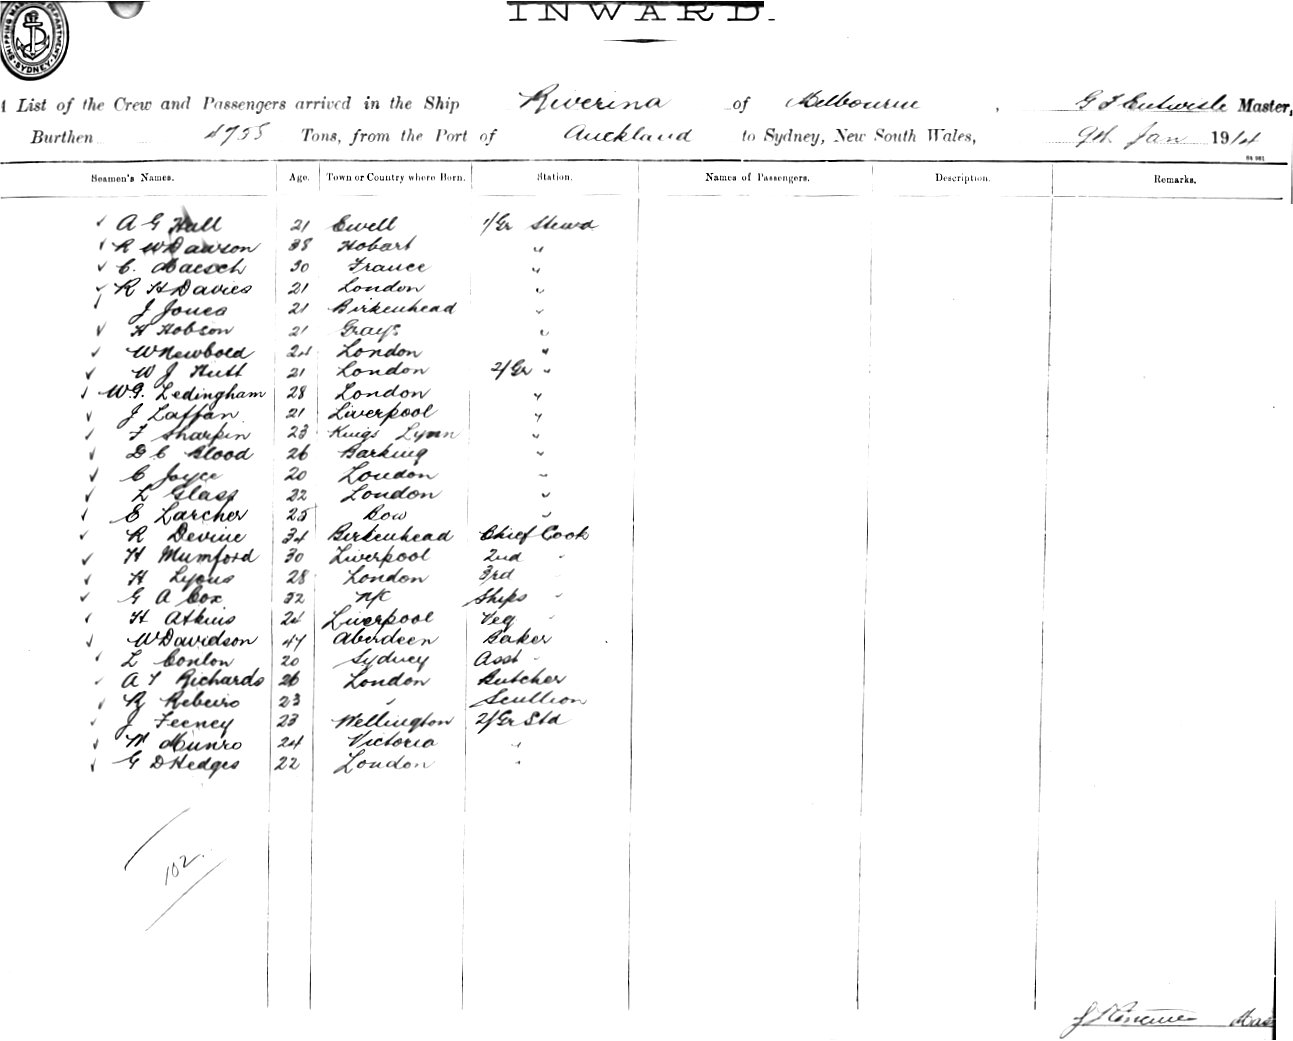 INWARD.
SHIPPING MASTER'S DEPARTMENT SYDNEY
List of the Crew and Passengers arrived in the Ship Riverina of Melbourne, G F Entwisle Master,
Burthen 4755 Tons, from the Port of Auckland to Sydney, New South Wales, 9th Jan 1914
Seamen's Names. Age. Town or Country where Born. Station. Names of Passengers. Description. Remarks.
A G Hall 21 Ewell 1/Gr Stewd
R W Dawson 38 Hobart "
C. 30 France "
R H Davies 21 London "
J Jones 21 Birkenhead "
H Hobson 21 Grays "
W Newbold 24 London "
W J Nutt 21 London 2/Gr "
W.G. Ledingham 28 London "
J Laffan 21 Liverpool "
F Sharpin 23 Kings Lynn "
D C Blood 26 Barking "
C Joyce 20 London "
L Glass 22 London "
E Larcher 25 Bow "
R Devine 34 Birkenhead Chief Cook
H Mumford 30 Liverpool 2nd "
H Lyons 28 London 3rd "
G A Cox 32 Ships "
H Atkins 24 Liverpool Veg "
W Davidson 47 Aberdeen Baker
L Conlon 20 Sydney Asst "
A T Richards 26 London Butcher
R Rebeiro 23 " Scullion
J Feeney 23 Wellington 2/Gr Std
W Munro 24 Victoria "
G D Hedges 22 London "
102.